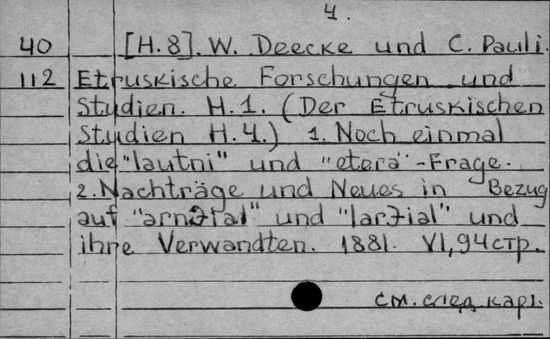 4.
40 [H.8]. W. Deecke und C. Pauli.
112 Etruskische Forschungen und
Studien. H.1. (Der Etruskischen
Studien H.4.) 1. Noch einmal
die "lautni" und "etera"-Frage.
2. Nachträge und Neues in Bezug
auf "arnθial" und "larθial" und
ihre Verwandten. 1881. VI, 94 стр.
См. след. карт.